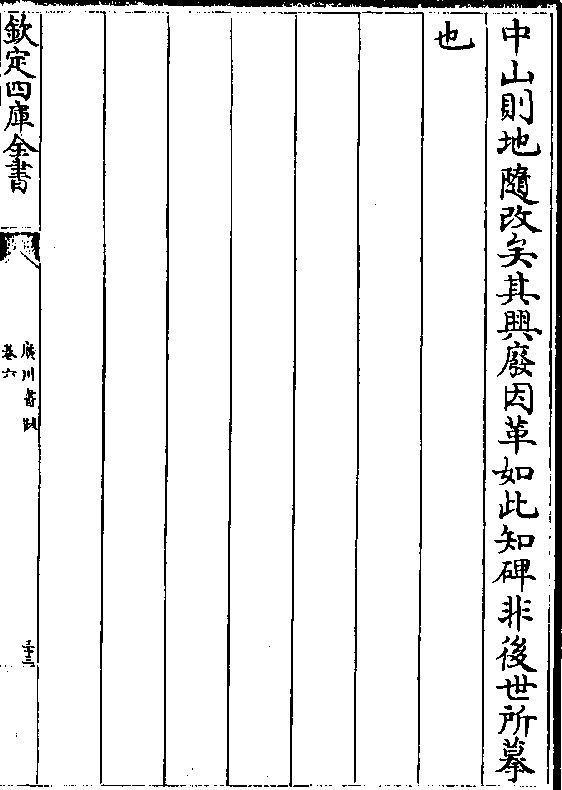 中山則地隨改矣其興廢因革如此知碑非後世所摹
也
欽定四庫全書
廣川書跋
卷六
三十三